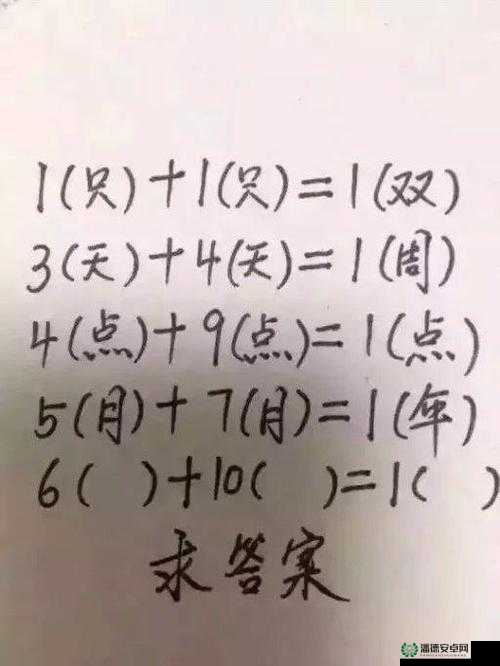 1(只)+1(只)=1(双)
3(天)+4(天)=1(周)
4(点)+9(点)=1(点)
5(月)+7(月)=1(年)
6( )+10( )=1( )
求答案
潘德安卓网